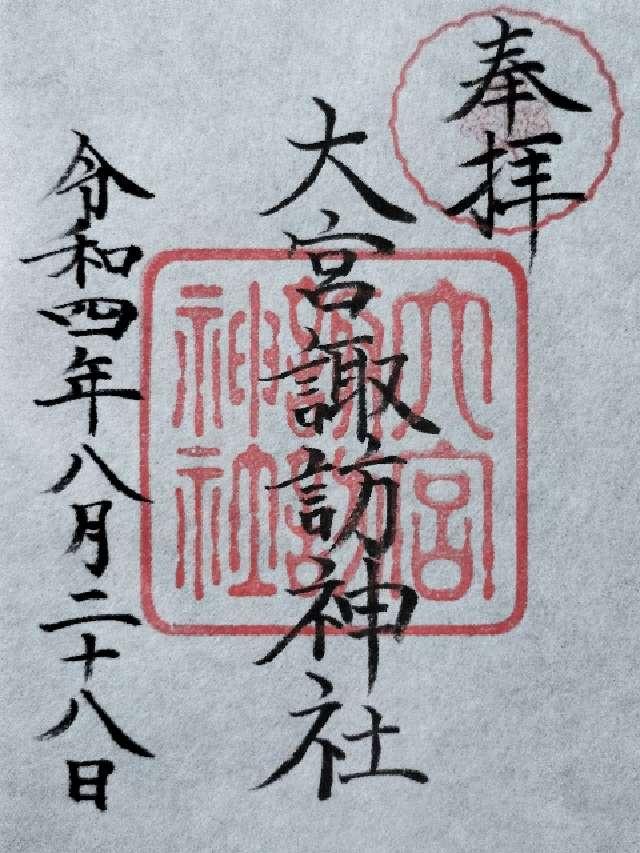 奉拝
大宮諏訪神社
大宮
諏訪
神社
令和四年八月二十八日